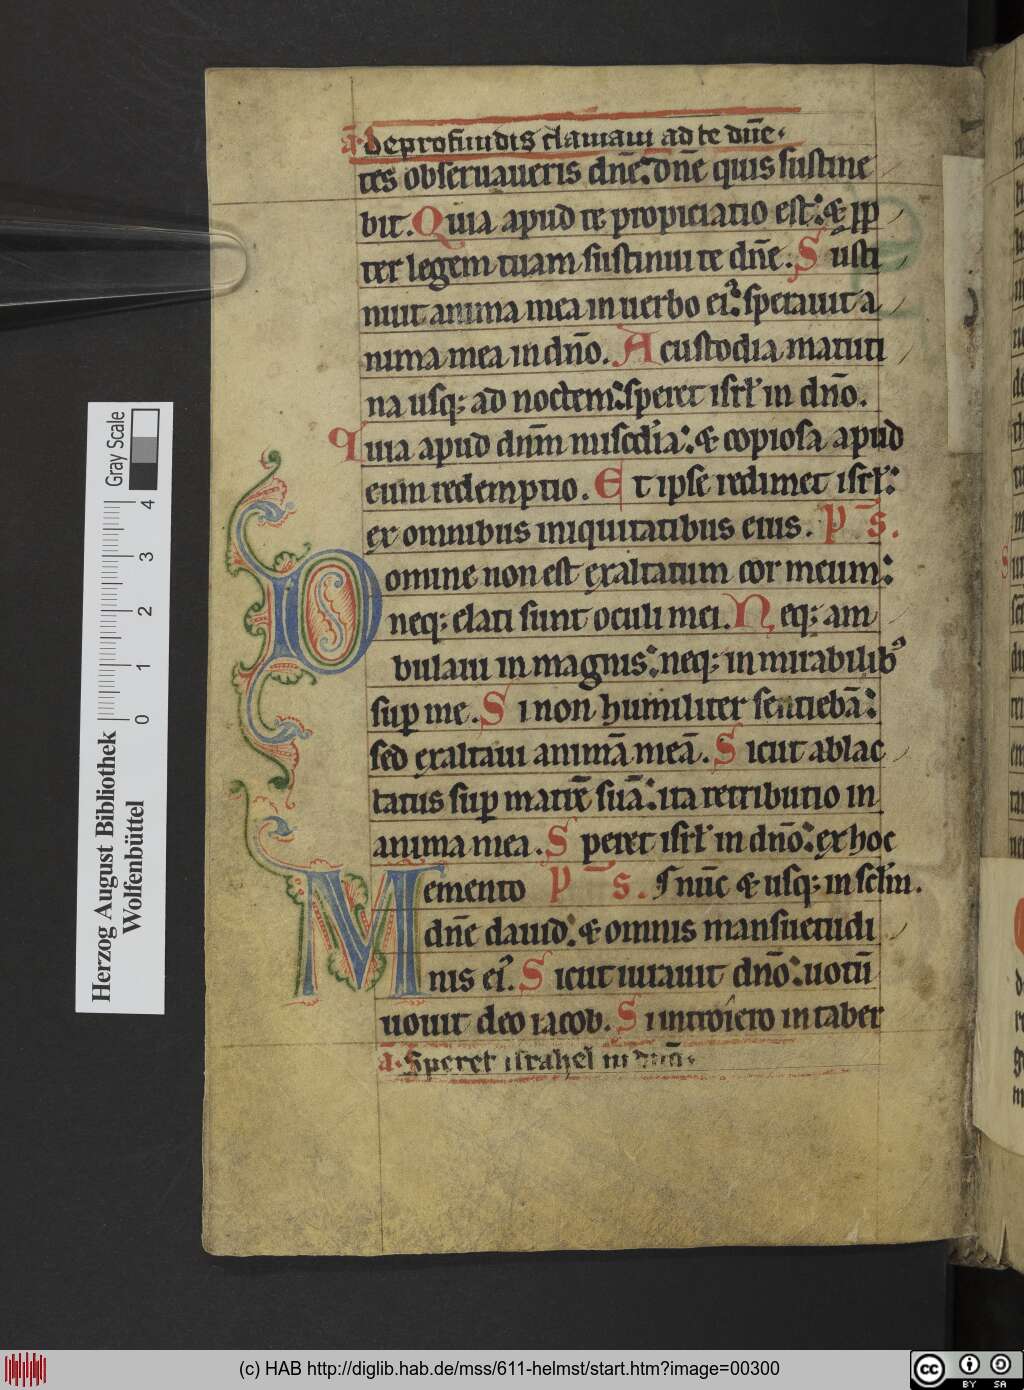 ā. De profundis clamaui ad te dn̄e.
tes obseruaueris dn̄e: dn̄e quis sustine
bit. Quia apud te propiciatio est: & pp̄
ter legem tuam sustinui te dn̄e. Susti
nuit anima mea in uerbo ei᷒: sperauit a
nima mea in dn̄o. A custodia matuti
na usq; ad noctem: speret isrl̄ in dn̄o.
Quia apud dn̄m misc̄dia: & copiosa apud
eum redemptio. Et ipse redimet isrl̄:
ex omnibus iniquitatibus eius. Ps̄.
Domine non est exaltatum cor meum:
neq; elati sunt oculi mei. Neq; am
bulaui in magnis: neq; in mirabilib᷒
sup me. Si non humiliter sentiebā:
sed exaltaui animā meā. Sicut ablac
tatus sup matrē suā: ita retributio in
anima mea. Speret isrl̄ in dn̄o: ex hoc
Memento Ps̄. nūc & usq; in sc̄lm.
dn̄e dauid: & omnis mansuetudi
nis ei᷒. Sicut iurauit dn̄o: uotū
uouit deo iacob. Si introiero in taber
ā. Speret israhel in dn̄o.
Herzog August Bibliothek
Wolfenbüttel
0 1 2 3 4
Gray Scale
(c) HAB http://diglib.hab.de/mss/611-helmst/start.htm?image=00300
cc BY SA